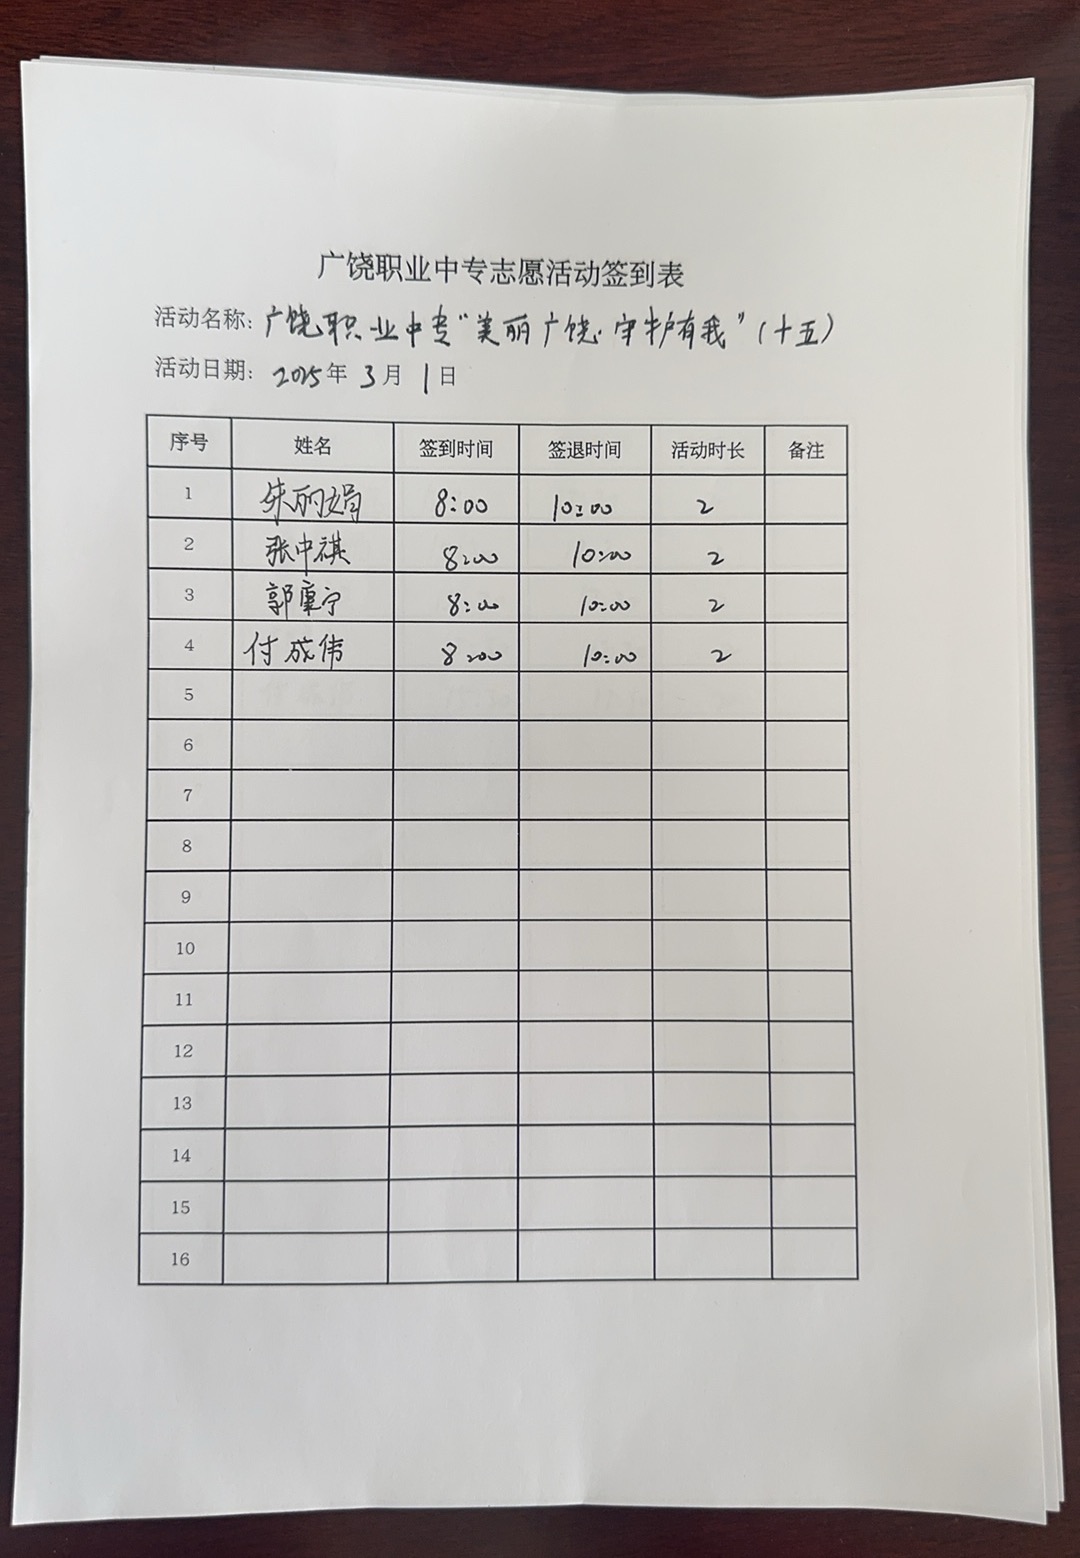 广饶职业中专志愿活动签到表
活动名称：广饶职业中专“美丽广饶·守护有我”（十五）
活动日期：2025年 3月 1日
序号 姓名 签到时间 签退时间 活动时长 备注
1 朱丽娟 8:00 10:00 2
2 张中祺 8:00 10:00 2
3 郭肇宁 8:00 10:00 2
4 付成伟 8:00 10:00 2
5
6
7
8
9
10
11
12
13
14
15
16